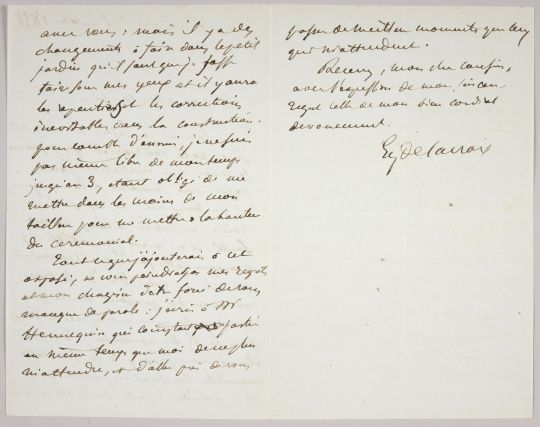 avec vous : mais il y a des
changements à faire dans le petit
jardin qu'il faut que je fasse
faire sous mes yeux et il y aura
les repentirs et les corrections
inévitables dans la construction.
pour comble d'ennui, je ne suis
pas même libre de mon temps
jusqu'au 3, étant obligé de me
mettre dans les mains de mon
tailleur pour me mettre à la hauteur
du cérémonial.
Tout ce que j'ajouterais à cet
exposé, ne vous peindrait pas mes regrets
et mon chagrin d'être forcé de vous
manquer de parole : j'écris à Mr
Hennequin qui comptait partir
en même temps que moi de ne plus
m'attendre, et d'aller près de vous
passer de meilleurs moments que ceux
qui m'attendent.
Recevez, mon cher cousin,
avec l'expression de mon sincère
regret celle de mon bien cordial
dévouement.
Eug Delacroix